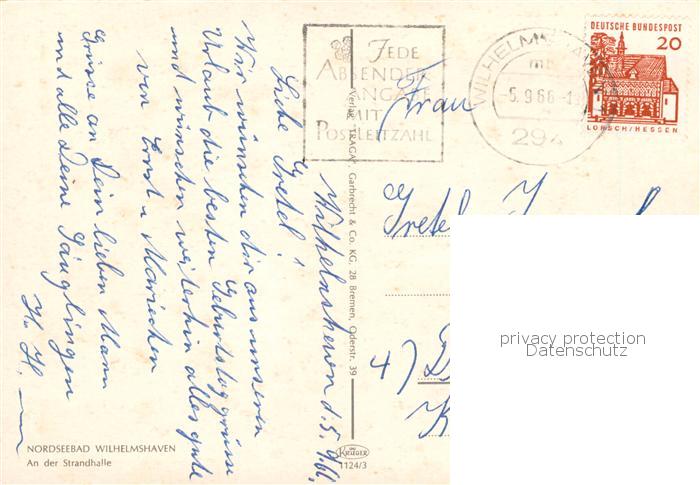 JEDE
ABSENDER
ANGABE
MIT
POSTLEITZAHL
WILHELMSHAVEN
mb
-5.9.66-19
294
DEUTSCHE BUNDESPOST
20
LORSCH/HESSEN
Frau
Gretel
4)
Wilhelmshaven d. 5.9.66.
Liebe Gretel!
Wir wünschen dir aus unseren
Urlaub die besten Geburtstagsgrüsse
und wünschen weiterhin alles gute
von Ernst u Mariechen
Grüsse an Dein lieben Mann
und alle Deine Säuglingen
Verlag "TRAGA" Garbrecht & Co. KG, 28 Bremen, Oderstr. 39
KRÜGER
1124/3
NORDSEEBAD WILHELMSHAVEN
An der Strandhalle
privacy protection
Datenschutz